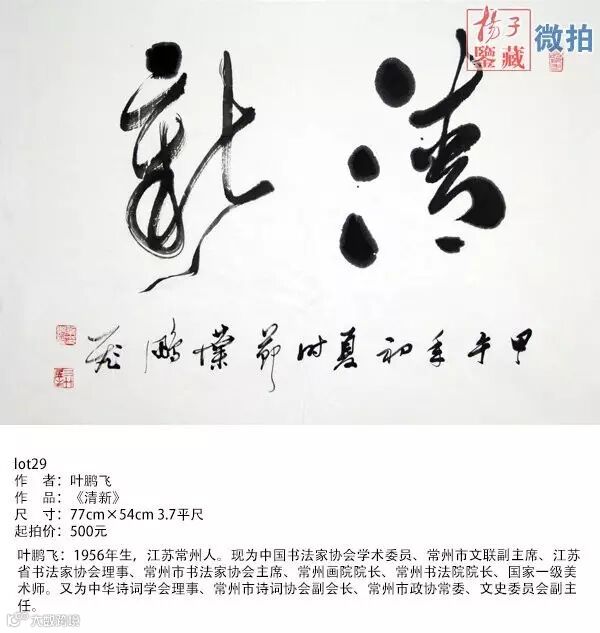 揚子
鑒藏
微拍
清新
甲午年初夏时节葉鹏飞
lot29
作 者：叶鹏飞
作 品：《清新》
尺 寸：77cm×54cm 3.7平尺
起拍价：500元
叶鹏飞：1956年生，江苏常州人。现为中国书法家协会学术委员、常州市文联副主席、江苏
省书法家协会理事、常州市书法家协会主席、常州画院院长、常州书法院院长、国家一级美
术师。又为中华诗词学会理事、常州市诗词协会副会长、常州市政协常委、文史委员会副主
任。
大威跨境